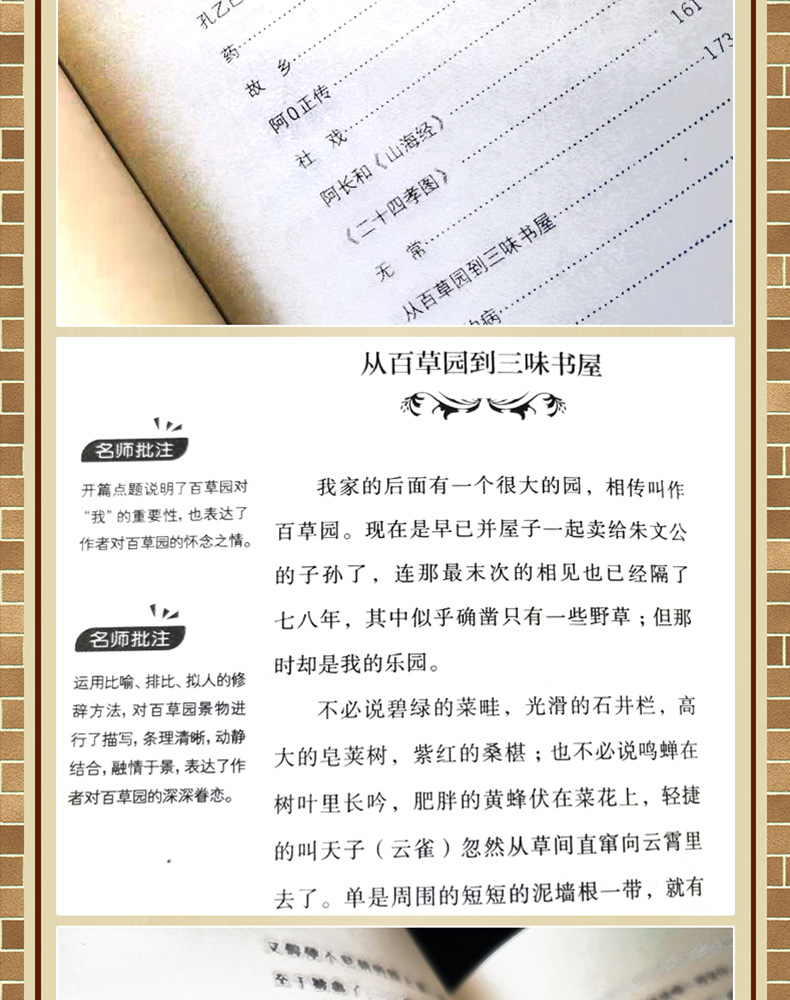 孔乙己
药
故 乡
161
阿Q正传
173
社 戏
阿长和《山海经》
《二十四孝图》
无 常
从百草园到三味书屋
的病
从百草园到三味书屋
名师批注
开篇点题说明了百草园对
“我”的重要性，也表达了
作者对百草园的怀念之情。
名师批注
运用比喻、排比、拟人的修
辞方法，对百草园景物进
行了描写，条理清晰，动静
结合，融情于景，表达了作
者对百草园的深深眷恋。
我家的后面有一个很大的园，相传叫作
百草园。现在是早已并屋子一起卖给朱文公
的子孙了，连那最末次的相见也已经隔了
七八年，其中似乎确凿只有一些野草；但那
时却是我的乐园。
不必说碧绿的菜畦，光滑的石井栏，高
大的皂荚树，紫红的桑椹；也不必说鸣蝉在
树叶里长吟，肥胖的黄蜂伏在菜花上，轻捷
的叫天子（云雀）忽然从草间直窜向云霄里
去了。单是周围的短短的泥墙根一带，就有